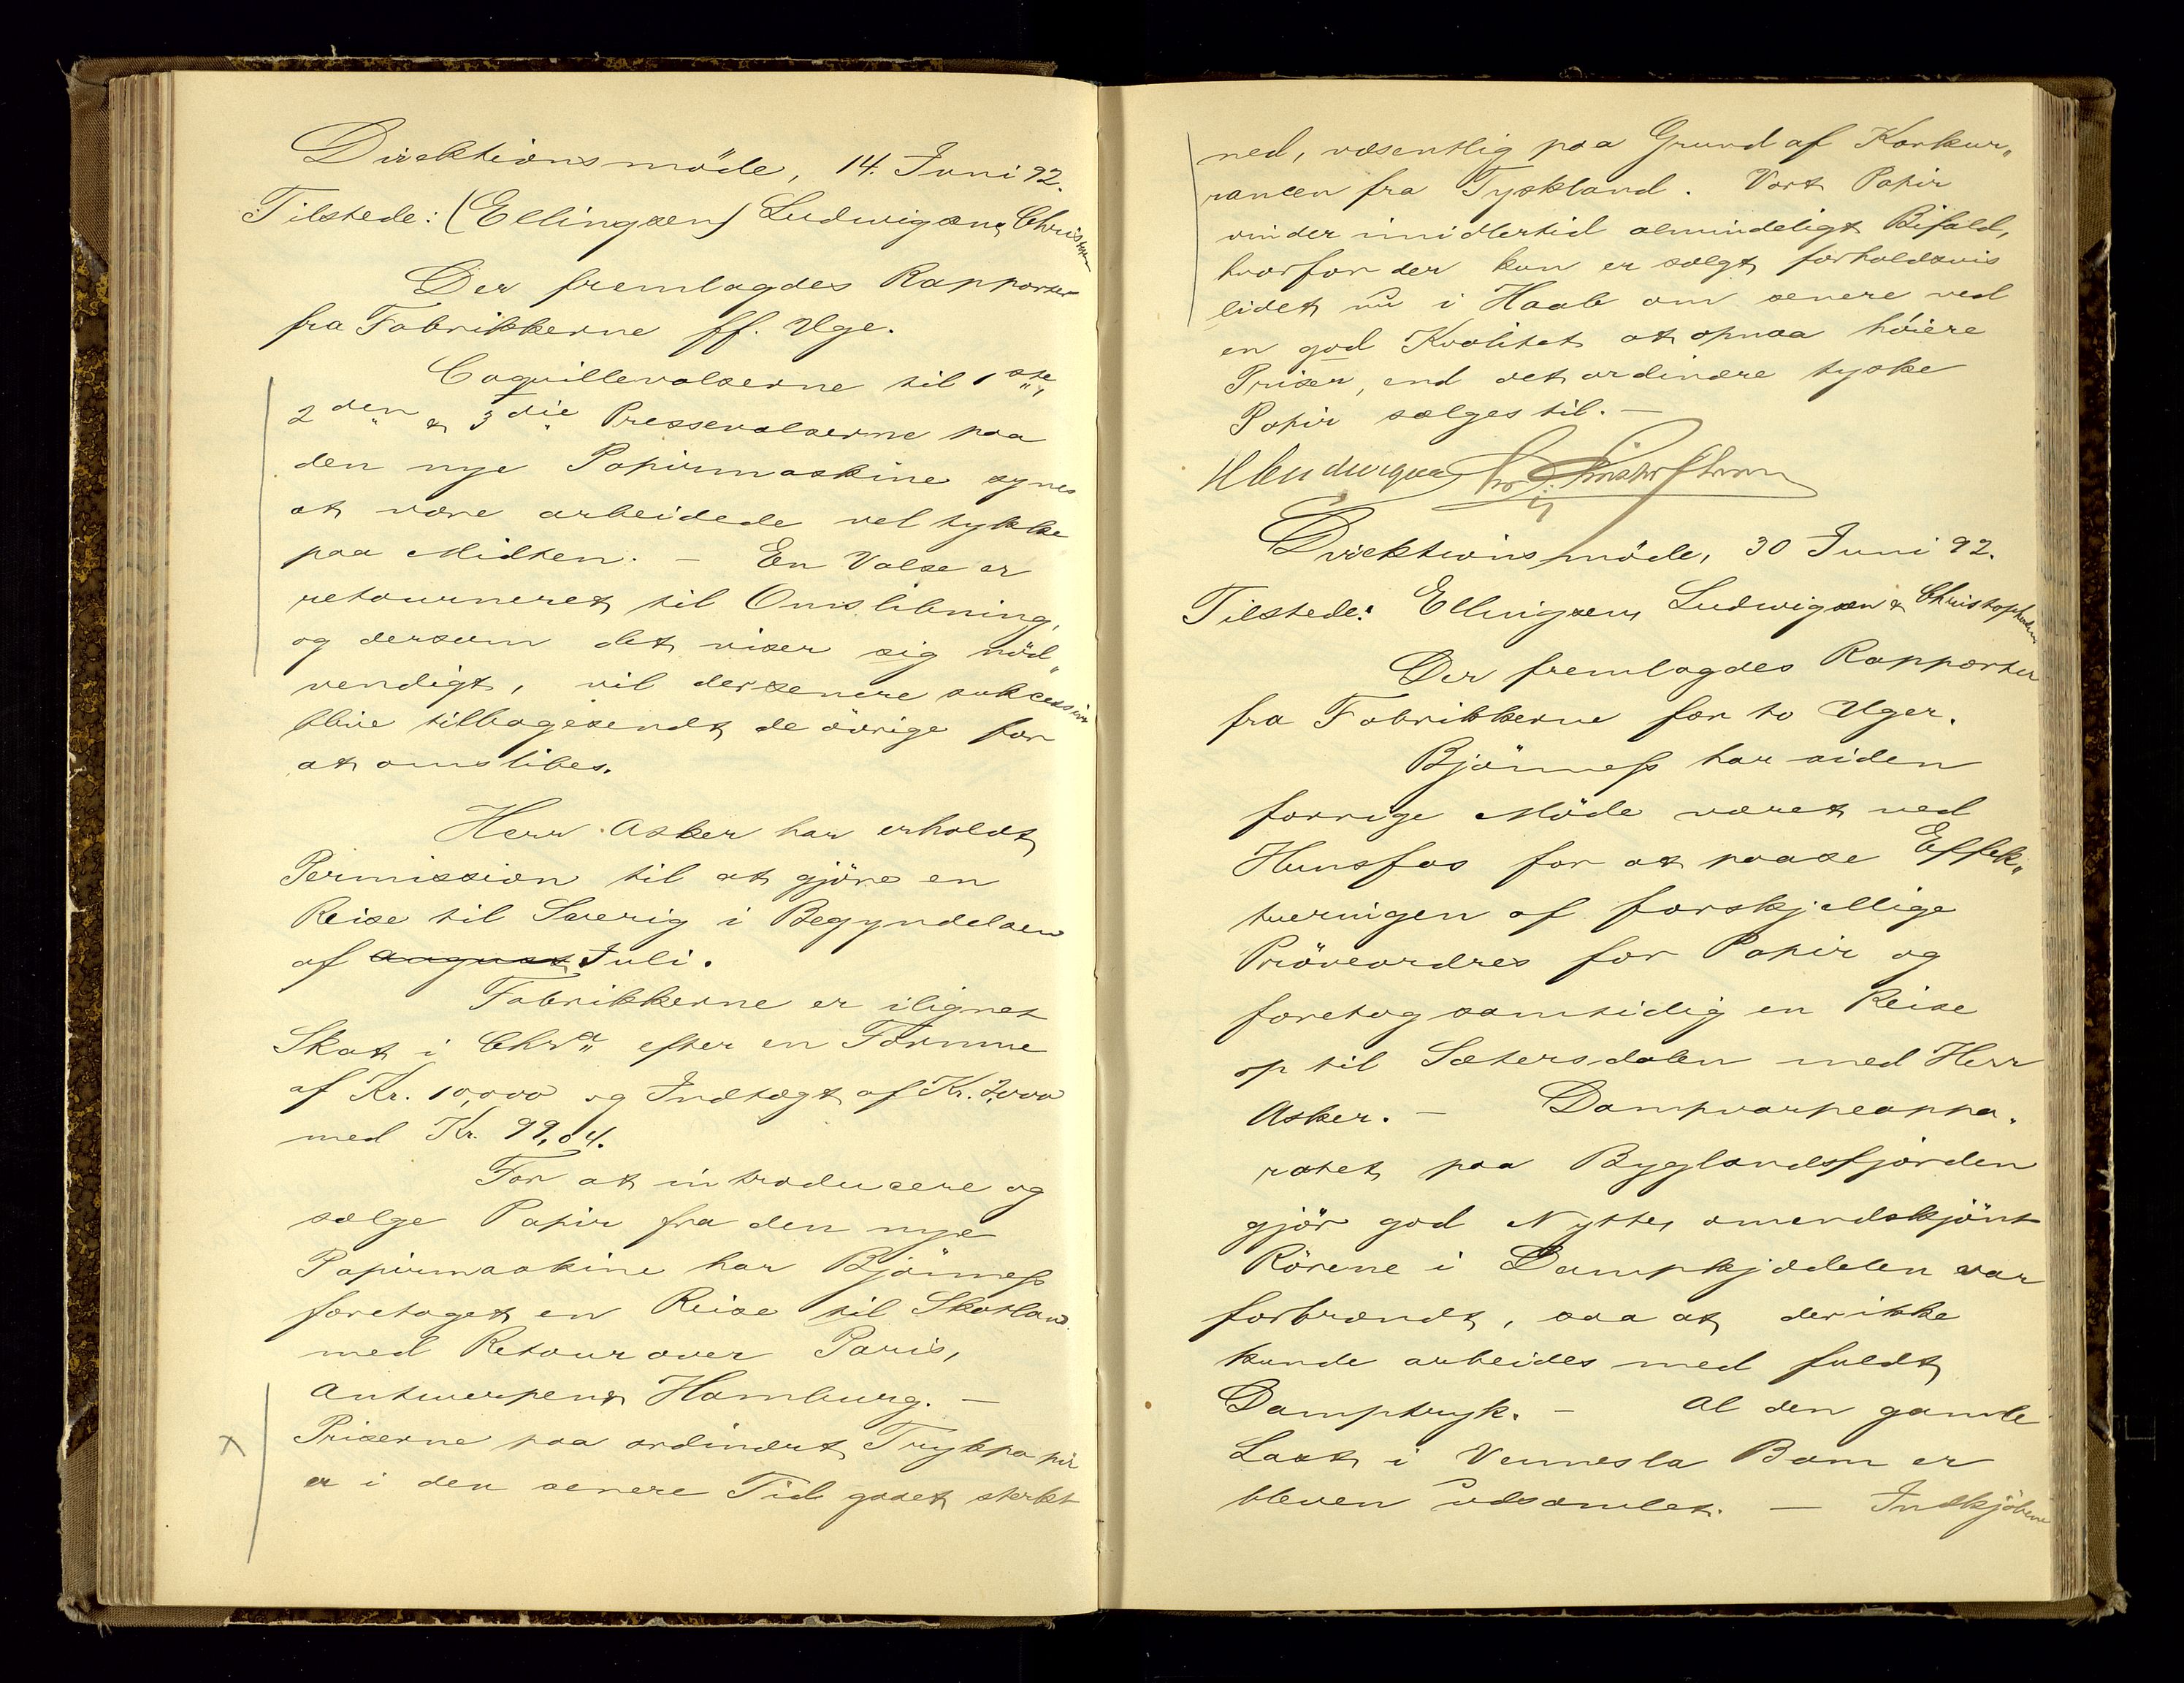 Direktionsmöde, 14. Juni 92.
Tilstede: (Ellingsen) Ludwigsen &
Der fremlagdes Rapporter
fra Fabrikkerne ff. Uge.
Coquillevalserne til 1ste,
2den & 3die Pressevalserne paa
den nye Papirmaskine synes
at være arbeidede vel tykke
paa Midten. – En Valse er
retourneret til Omslibning,
og dersom det viser sig nöd„
vendigt, vil der senere sukcessiv
blive tilbagesendt de övrige for
at omslibes.
Herr Asker har erholdt
Permission til at gjöre en
Reise til Sverig i Begyndelsen
af August Juli.
Fabrikkerne er ilignet
Skat i Chra„ efter en Formue
af Kr. 10,000 og Indtægt af Kr. 2000
med Kr. 99,04.
For at introducere og
sælge Papir fra den nye
Papirmaskine har Bjönness
foretaget en Reise til Skotland
med Retour over Paris,
Antwerpen & Hamburg. –
Priserne paa ordinært Trykpapir
er i den senere Tid gaaet sterkt
ned, væsentlig paa Grund af Konkur„
rancen fra Tyskland. Vort Papir
vinder imidlertid almindeligt Bifald,
hvorfor der kun er solgt forholdsvis
lidet nu i Haab om senere ved
en god Kvalitet at opnaa höiere
Priser, end det ordinære tyske
Papir sælges til. –
Direktionsmöde, 30 Juni 92.
Tilstede: Ellingsen, Ludwigsen & Christophersen
Der fremlagdes Rapporter
fra Fabrikkerne for to Uger.
Bjönness har siden
forrige Möde været ved
Hunsfos for at paase Effek„
tueringen af forskjellige
Pröveordres for Papir og
foretog samtidig en Reise
op til Sætersdalen med Herr
Asker. – Dampvarpeappa„
ratet paa Byglandsfjorden
gjör god Nytte, omendskjönt
Rörene i Dampkjædelen var
forbrændt, saa at der ikke
kunde arbeides med fuldt
Damptryk. – Al den gamle
Last i Vennesla Bom er
bleven udsamlet. – Indkjöbene